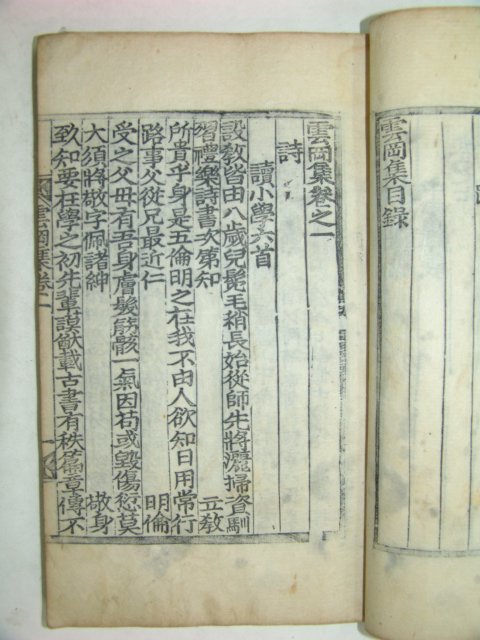 雲岡集目錄
雲岡集卷之一
詩
讀小學六首
設教皆由八歲兒髫毛稍長始從師先將灑掃資馴
習禮樂詩書次第知 立教
所貴乎身是五倫明之在我不由人欲知日用常行
路事父從兄最近仁 明倫
受之父母有吾身膚髮筋骸一氣因苟或毀傷愆莫
大須將敬字佩諸紳 敬身
致知要在學之初先輩謨猷載古書有秩篇章傳不
雲岡集卷一